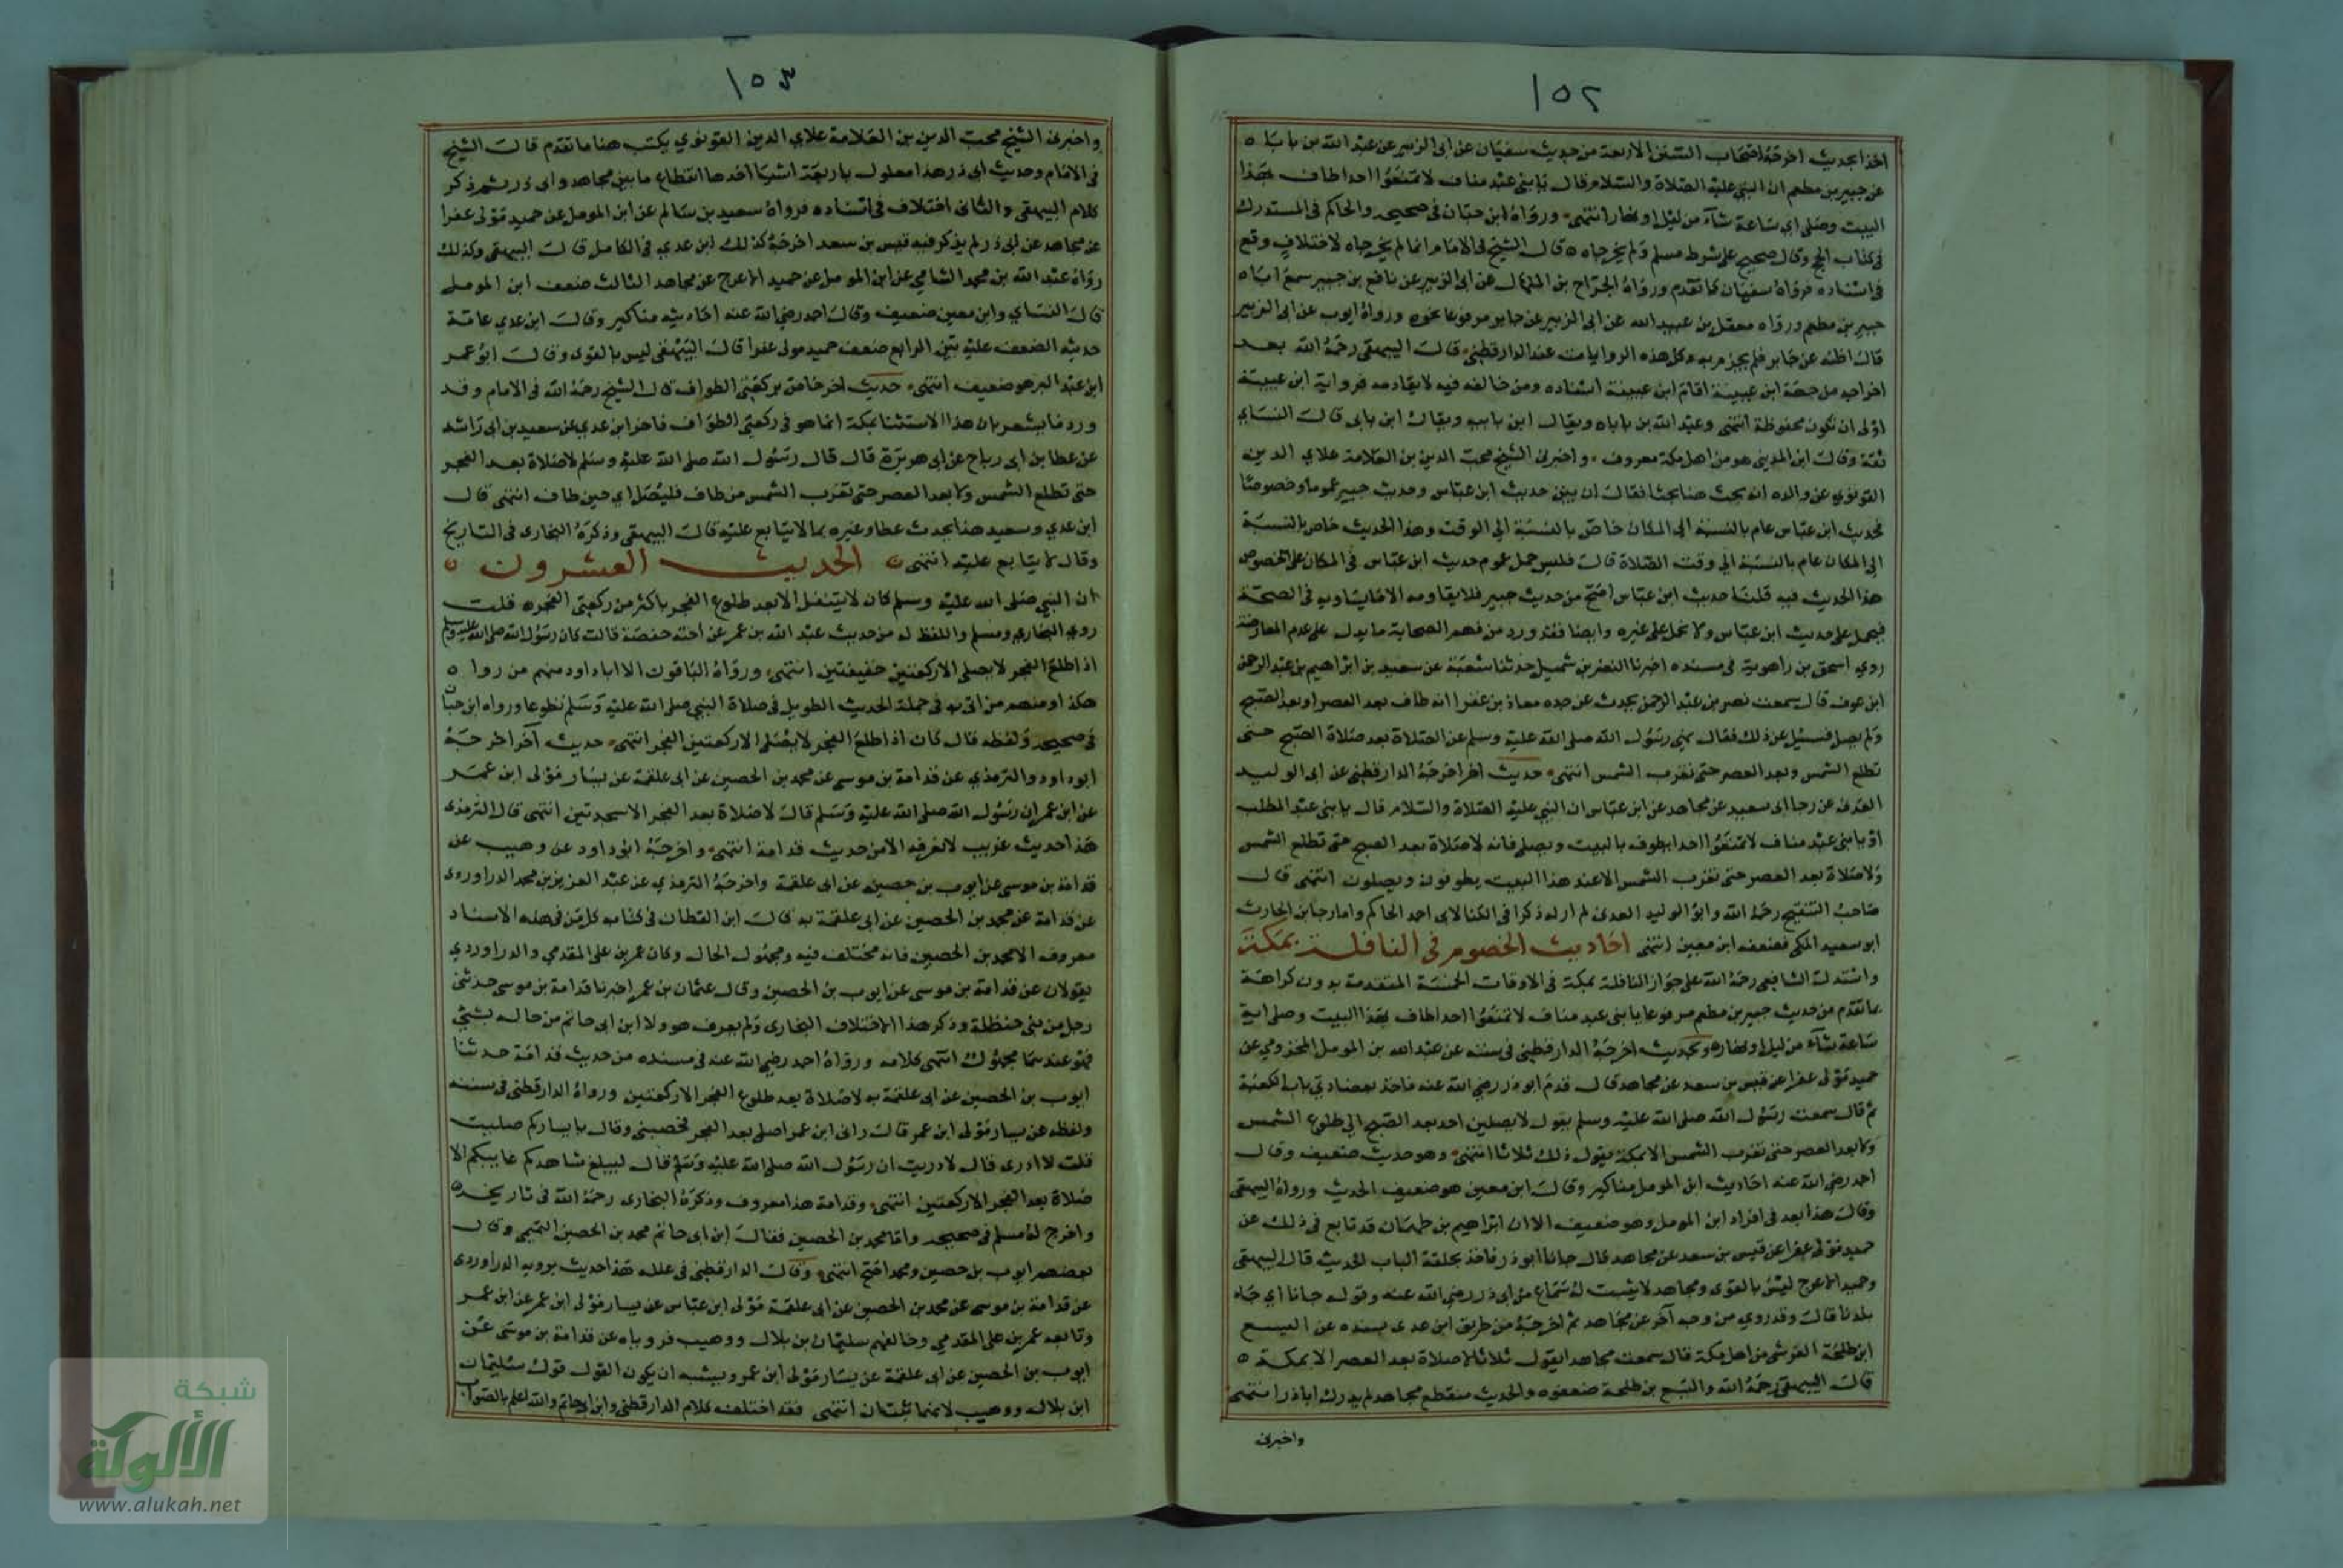 ١٥٢
اخذا بحديث اخرجه اصحاب السنن الاربعة من حديث سفيان عن ابى الزبير عن عبد الله بن باباه
عن جبير بن مطعم ان النبي عليه الصلاة والسلام قال يا بنى عبد مناف لا تمنعوا احدا طاف بهذا
البيت وصلى اي ساعة شآء من ليل او نهار انتهى ورواه ابن حبان فى صحيحه والحاكم فى المستدرك
فى كتاب الحج وقال صحيح على شرط مسلم ولم يخرجاه قال الشيخ فى الامام انما لم يخرجاه لاختلاف وقع
فى اسناده فرواه سفيان كما تقدم ورواه الجراح بن المنهال عن ابى الزبير عن نافع بن جبير سمع اباه
جبير بن مطعم ورواه معقل بن عبيد الله عن ابى الزبير عن جابر مرفوعا نحوه ورواه ايوب عن ابى الزبير
قال اظنه عن جابر فلم يجزم به وكل هذه الروايات عند الدارقطنى قالت البيهقى رحمه الله بعد
اخراجه من جهة ابن عيينة اقام ابن عيينة اسناده ومن خالفه فيه لا يقاومه فرواية ابن عيينة
اولى ان تكون محفوظة انتهى وعبد الله بن باباه ويقال ابن بابيه ويقال ابن بابى قالت النساي
ثقة وقالت ابن المدينى هو من اهل مكة معروف واخبرنى الشيخ محب الدين بن العلامة علاي الدين
القونوي عن والده انه بحث هنا بحثا فقال ان بين حديث ابن عباس وحديث جبير عموما وخصوصا
فحديث ابن عباس عام بالنسبة الى المكان خاص بالنسبة الي الوقت وهذا الحديث خاص بالنسبة
الى المكان عام بالنسبة الي وقت الصلاة قالت فليس حمل عموم حديث ابن عباس فى المكان على الخصوص
هذا الحديث فيه قلنا حديث ابن عباس اصح من حديث جبير فلا يقاومه الا ما يساويه فى الصحة
فيحمل على حديث ابن عباس ولا يحمل على غيره وايضا فقد ورد من فهم الصحابة ما يدل على عدم المعارضة
روي اسحق بن راهويه فى مسنده اخبرنا النضر بن شميل حدثنا شعبة عن سعيد بن ابراهيم بن عبد الرحمن
ابن عوف قال سمعت نصر بن عبد الرحمن يحدث عن جده معاذ بن عفرا انه طاف بعد العصر او بعد الصبح
ولم يصل فسئل عن ذلك فقال نهى رسول الله صلى الله عليه وسلم عن الصلاة بعد صلاة الصبح حتى
تطلع الشمس وبعد العصر حتى تغرب الشمس انتهى حديث اخر اخرجه الدارقطنى عن ابى الوليد
العدنى عن رجا ابى سعيد عن مجاهد عن ابن عباس ان النبي عليه الصلاة والسلام قال يا بنى عبد المطلب
او يا بنى عبد مناف لا تمنعوا احدا يطوف بالبيت ويصلى فانه لا صلاة بعد الصبح حتى تطلع الشمس
ولا صلاة بعد العصر حتى تغرب الشمس الا عند هذا البيت يطوفون ويصلون انتهى قال
صاحب التنقيح رحمه الله وابو الوليد العدنى لم ار له ذكرا فى الكنا لابى احمد الحاكم واما رجا بن الحارث
ابو سعيد المكى فضعفه ابن معين انتهى احاديث الخصوم فى النافلة بمكة
واستدلت الشافعى رحمه الله على جواز النافلة بمكة فى الاوقات الخمسة المتقدمة بدون كراهة
بما تقدم من حديث جبير بن مطعم مرفوعا يا بنى عبد مناف لا تمنعوا احدا طاف بهذا البيت وصلى اية
ساعة شآء من ليل او نهار وبحديث اخرجه الدارقطنى فى سننه عن عبد الله بن المومل المخزومي عن
حميد مولى عفرا عن قيس بن سعد عن مجاهد قال قدم ابو ذر رضى الله عنه فاخذ بعضادتي باب الكعبة
ثم قال سمعت رسول الله صلى الله عليه وسلم يقول لا يصلين احد بعد الصبح الى طلوع الشمس
ولا بعد العصر حتى تغرب الشمس الا بمكة يقول ذلك ثلاثا انتهى وهو حديث ضعيف وقال
احمد رضى الله عنه احاديث ابن المومل مناكير وقالت ابن معين هو ضعيف الحديث ورواه البيهقى
وقالت هذا بعد فى افراد ابن المومل وهو ضعيف الا ان ابراهيم بن طهمان قد تابع فى ذلك عن
حميد مولى عفرا عن قيس بن سعد عن مجاهد قال جانا ابو ذر فاخذ بحلقة الباب الحديث قال البيهقى
وحميد الاعرج ليس بالقوى ومجاهد لا يثبت له سماع من ابى ذر رضى الله عنه وقوله جانا اي جاه
بلدنا قالت وقد روي من وجه آخر عن مجاهد ثم اخرجه من طريق ابن عدى بسنده عن اليسع
ابن طلحة القرشى من اهل مكة قال سمعت مجاهدا يقول ثلاثا لا صلاة بعد العصر الا بمكة
قالت البيهقى رحمه الله واليسع بن طلحة ضعفوه والحديث منقطع مجاهد لم يدرك اباذر انتهى
واخبرنى
١٥٣
واخبرنى الشيخ محب الدين بن العلامة علاي الدين القونوي يكتب هنا ما تقدم قالت الشيخ
فى الامام وحديث ابى ذر هذا معلول باربعة اشيا احدها انقطاع ما بين مجاهد وابى ذر ثم ذكر
كلام البيهقى والثانى اختلاف فى اسناده فرواه سعيد بن سالم عن ابن المومل عن حميد مولى عفرا
عن مجاهد عن ابى ذر لم يذكر فيه قيس بن سعد اخرجه كذلك ابن عدي فى الكامل قالت البيهقى وكذلك
رواه عبد الله بن محمد الشامي عن ابن المومل عن حميد الاعرج عن مجاهد الثالث ضعف ابن المومل
قال النساي وابن معين ضعيف وقال احمد رضى الله عنه احاديثه مناكير وقالت ابن عدي عامة
حديثه الضعف عليه بين الرابع ضعف حميد مولى عفرا قالت البيهقى ليس بالقوى وقالت ابو عمر
ابن عبد البر هو ضعيف انتهى حديث اخر خاص بركعتى الطواف قال الشيخ رحمه الله فى الامام وقد
ورد ما يشعر بان هذا الاستثنا بمكة انما هو فى ركعتى الطواف فاخرج ابن عدي عن سعيد بن ابى راشد
عن عطا بن ابى رباح عن ابى هريرة قال قال رسول الله صلى الله عليه وسلم لا صلاة بعد الفجر
حتى تطلع الشمس ولا بعد العصر حتى تغرب الشمس من طاف فليصل اي حين طاف انتهى قال
ابن عدي وسعيد هذا يحدث عن عطا وغيره بما لا يتابع عليه قالت البيهقى وذكره البخارى فى التاريخ
وقال لا يتابع عليه انتهى الحديث العشرون
ان النبي صلى الله عليه وسلم كان لا يتنفل الا بعد طلوع الفجر باكثر من ركعتى الفجر قلت
روي البخارى ومسلم واللفظ له من حديث عبد الله بن عمر عن اخته حفصة قالت كان رسول الله صلى الله عليه وسلم
اذا طلع الفجر لا يصلى الا ركعتين خفيفتين انتهى ورواه الباقون الا ابا داود منهم من روا
هكذا ومنهم من اتى به فى جملة الحديث الطويل فى صلاة النبى صلى الله عليه وسلم تطوعا ورواه ابن حبان
فى صحيحه ولفظه قال كان اذا طلع الفجر لا يصلى الا ركعتين الفجر انتهى حديث آخر اخرجه
ابو داود والترمذي عن قدامة بن موسى عن محمد بن الحصين عن ابى علقمة عن يسار مولى ابن عمر
عن ابن عمر ان رسول الله صلى الله عليه وسلم قالت لا صلاة بعد الفجر الا سجدتين انتهى قال الترمذى
هذا حديث غريب لا نعرفه الا من حديث قدامة انتهى واخرجه ابو داود عن وهيب عن
قدامة بن موسى عن ايوب بن حصين عن ابى علقمة واخرجه الترمذي عن عبد العزيز بن محمد الدراوردى
عن قدامة عن محمد بن الحصين عن ابى علقمة به قالت ابن القطان فى كتابه كل من فى هذه الاسناد
معروف الا محمد بن الحصين فانه مختلف فيه ومجهول الحال وكان عمر بن على المقدمي والدراوردي
يقولان عن قدامة بن موسى عن ايوب بن الحصين وقال عثمان بن عمر اخبرنا قدامة بن موسى حدثنى
رجل من بنى حنظلة وذكر هذا الاختلاف البخارى ولم يعرف هو ولا ابن ابى حاتم من حاله بشئ
فهو عندهما مجهول انتهى كلامه ورواه احمد رضى الله عنه فى مسنده من حديث قدامة حدثنا
ايوب بن الحصين عن ابى علقمة به لا صلاة بعد طلوع الفجر الا ركعتين ورواه الدارقطنى فى سننه
ولفظه عن يسار مولى ابن عمر قالت رانى ابن عمر اصلى بعد الفجر فحصبنى وقال يا يسار كم صليت
قلت لا ادرى قال لا دريت ان رسول الله صلى الله عليه وسلم قال ليبلغ شاهدكم غايبكم الا
صلاة بعد الفجر الا ركعتين انتهى وقدامة هذا معروف وذكره البخارى رحمه الله فى تاريخه
واخرج له مسلم فى صحيحه واما محمد بن الحصين فقالت ابن ابى حاتم محمد بن الحصين التميمى وقال
بعضهم ايوب بن حصين ومحمد اصح انتهى وقالت الدارقطنى فى علله هذا حديث يرويه الدراوردى
عن قدامة بن موسى عن محمد بن الحصين عن ابى علقمة مولى ابن عباس عن يسار مولى ابن عمر عن ابن عمر
وتابعه عمر بن على المقدمي وخالفهم سليمان بن بلال ووهيب فروياه عن قدامة بن موسى عن
ايوب بن الحصين عن ابى علقمة عن يسار مولى ابن عمر ويشبه ان يكون القول قول سليمان
ابن بلال ووهيب لانهما ثبتان انتهى فقد اختلف كلام الدارقطنى وابن ابى حاتم والله اعلم بالصواب
شبكة
الألوكة
www.alukah.net